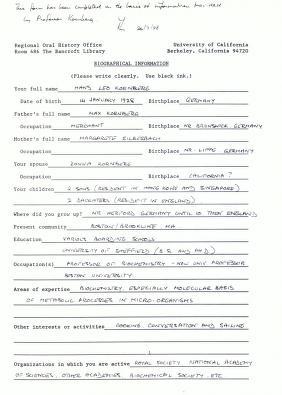 This form has been completed on the basis of information provided
by Professor Kornberg.
Regional Oral History Office University of California
Room 486 The Bancroft Library Berkeley, California 94720
BIOGRAPHICAL INFORMATION
(Please write clearly. Use black ink.)
Your full name HANS LEO KORNBERG
Date of birth 14 JANUARY 1928 Birthplace GERMANY
Father's full name MAX KORNBERG
Occupation MERCHANT Birthplace NR GERMANY
Mother's full name MARGARETE SILBERBACH
Occupation Birthplace NR. LIPPE GERMANY
Your spouse DONNA KORNBERG
Occupation Birthplace CALIFORNIA?
Your children 2 SONS (RESIDENT IN HONG KONG AND SINGAPORE)
2 DAUGHTERS (RESIDENT IN ENGLAND)
Where did you grow up? NR HERFORD GERMANY UNTIL 10 THEN ENGLAND
Present community BOSTON/BROOKLINE MA
Education VARIOUS BOARDING SCHOOLS
UNIVERSITY OF SHEFFIELD (B.S. AND PH.D)
Occupation(s) PROFESSOR OF BIOCHEMISTRY - NOW UNIV PROFESSOR
BOSTON UNIVERSITY
Areas of expertise BIOCHEMISTRY, ESPECIALLY MOLECULAR BASIS
OF METABOLIC PROCESSES IN MICRO-ORGANISMS
Other interests or activities COOKING, CONVERSATION AND SAILING
Organizations in which you are active ROYAL SOCIETY, NATIONAL ACADEMY
OF SCIENCES, OTHER ACADEMIES, BIOCHEMICAL SOCIETY, ETC